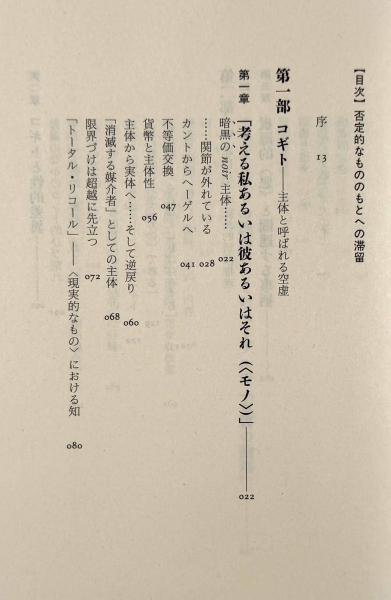 【目次】 否定的なもののもとへの滞留
序 13
第一部 コギト――主体と呼ばれる空虚
第一章 「考える私あるいは彼あるいはそれ（〈モノ〉）」――022
暗黒の noir 主体…… 022
……関節が外れている 028
カントからヘーゲルへ 041
不等価交換 047
貨幣と主体性 056
主体から実体へ……そして逆戻り 060
「消滅する媒介者」としての主体 068
限界づけは超越に先立つ 072
「トータル・リコール」――〈現実的なもの〉における知 080